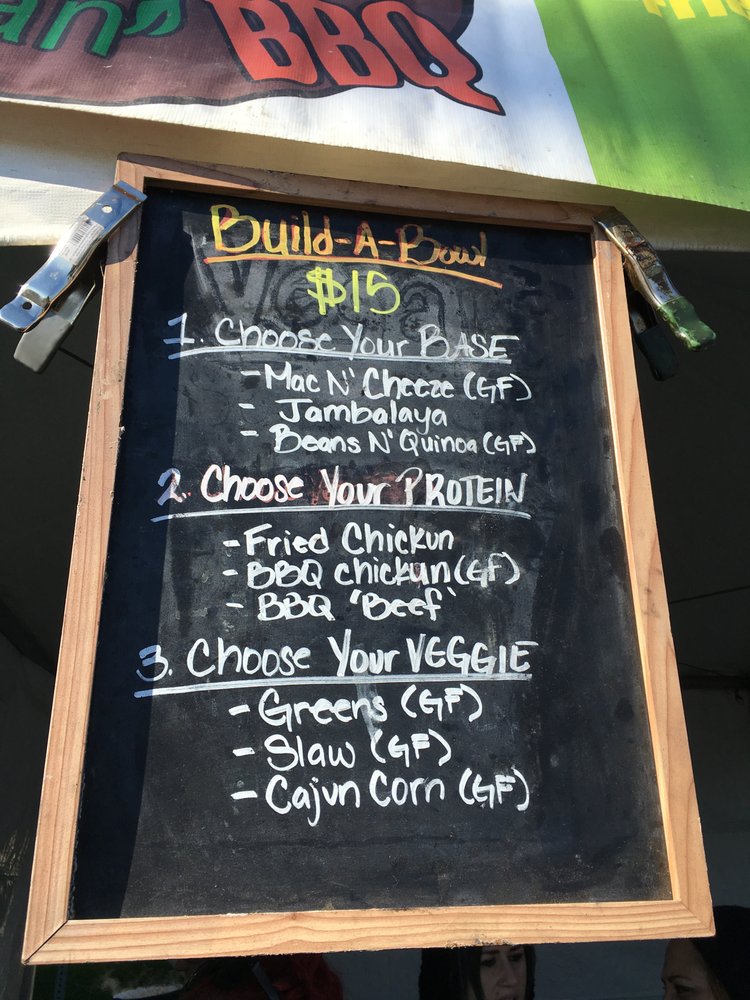 an' BBQ
Build-A-Bowl
$15
1. Choose Your BASE
- Mac N' Cheeze (GF)
- Jambalaya
- Beans N' Quinoa (GF)
2. Choose Your PROTEIN
- Fried Chickun
- BBQ Chickun (GF)
- BBQ 'Beef'
3. Choose Your VEGGIE
- Greens (GF)
- Slaw (GF)
- Cajun Corn (GF)